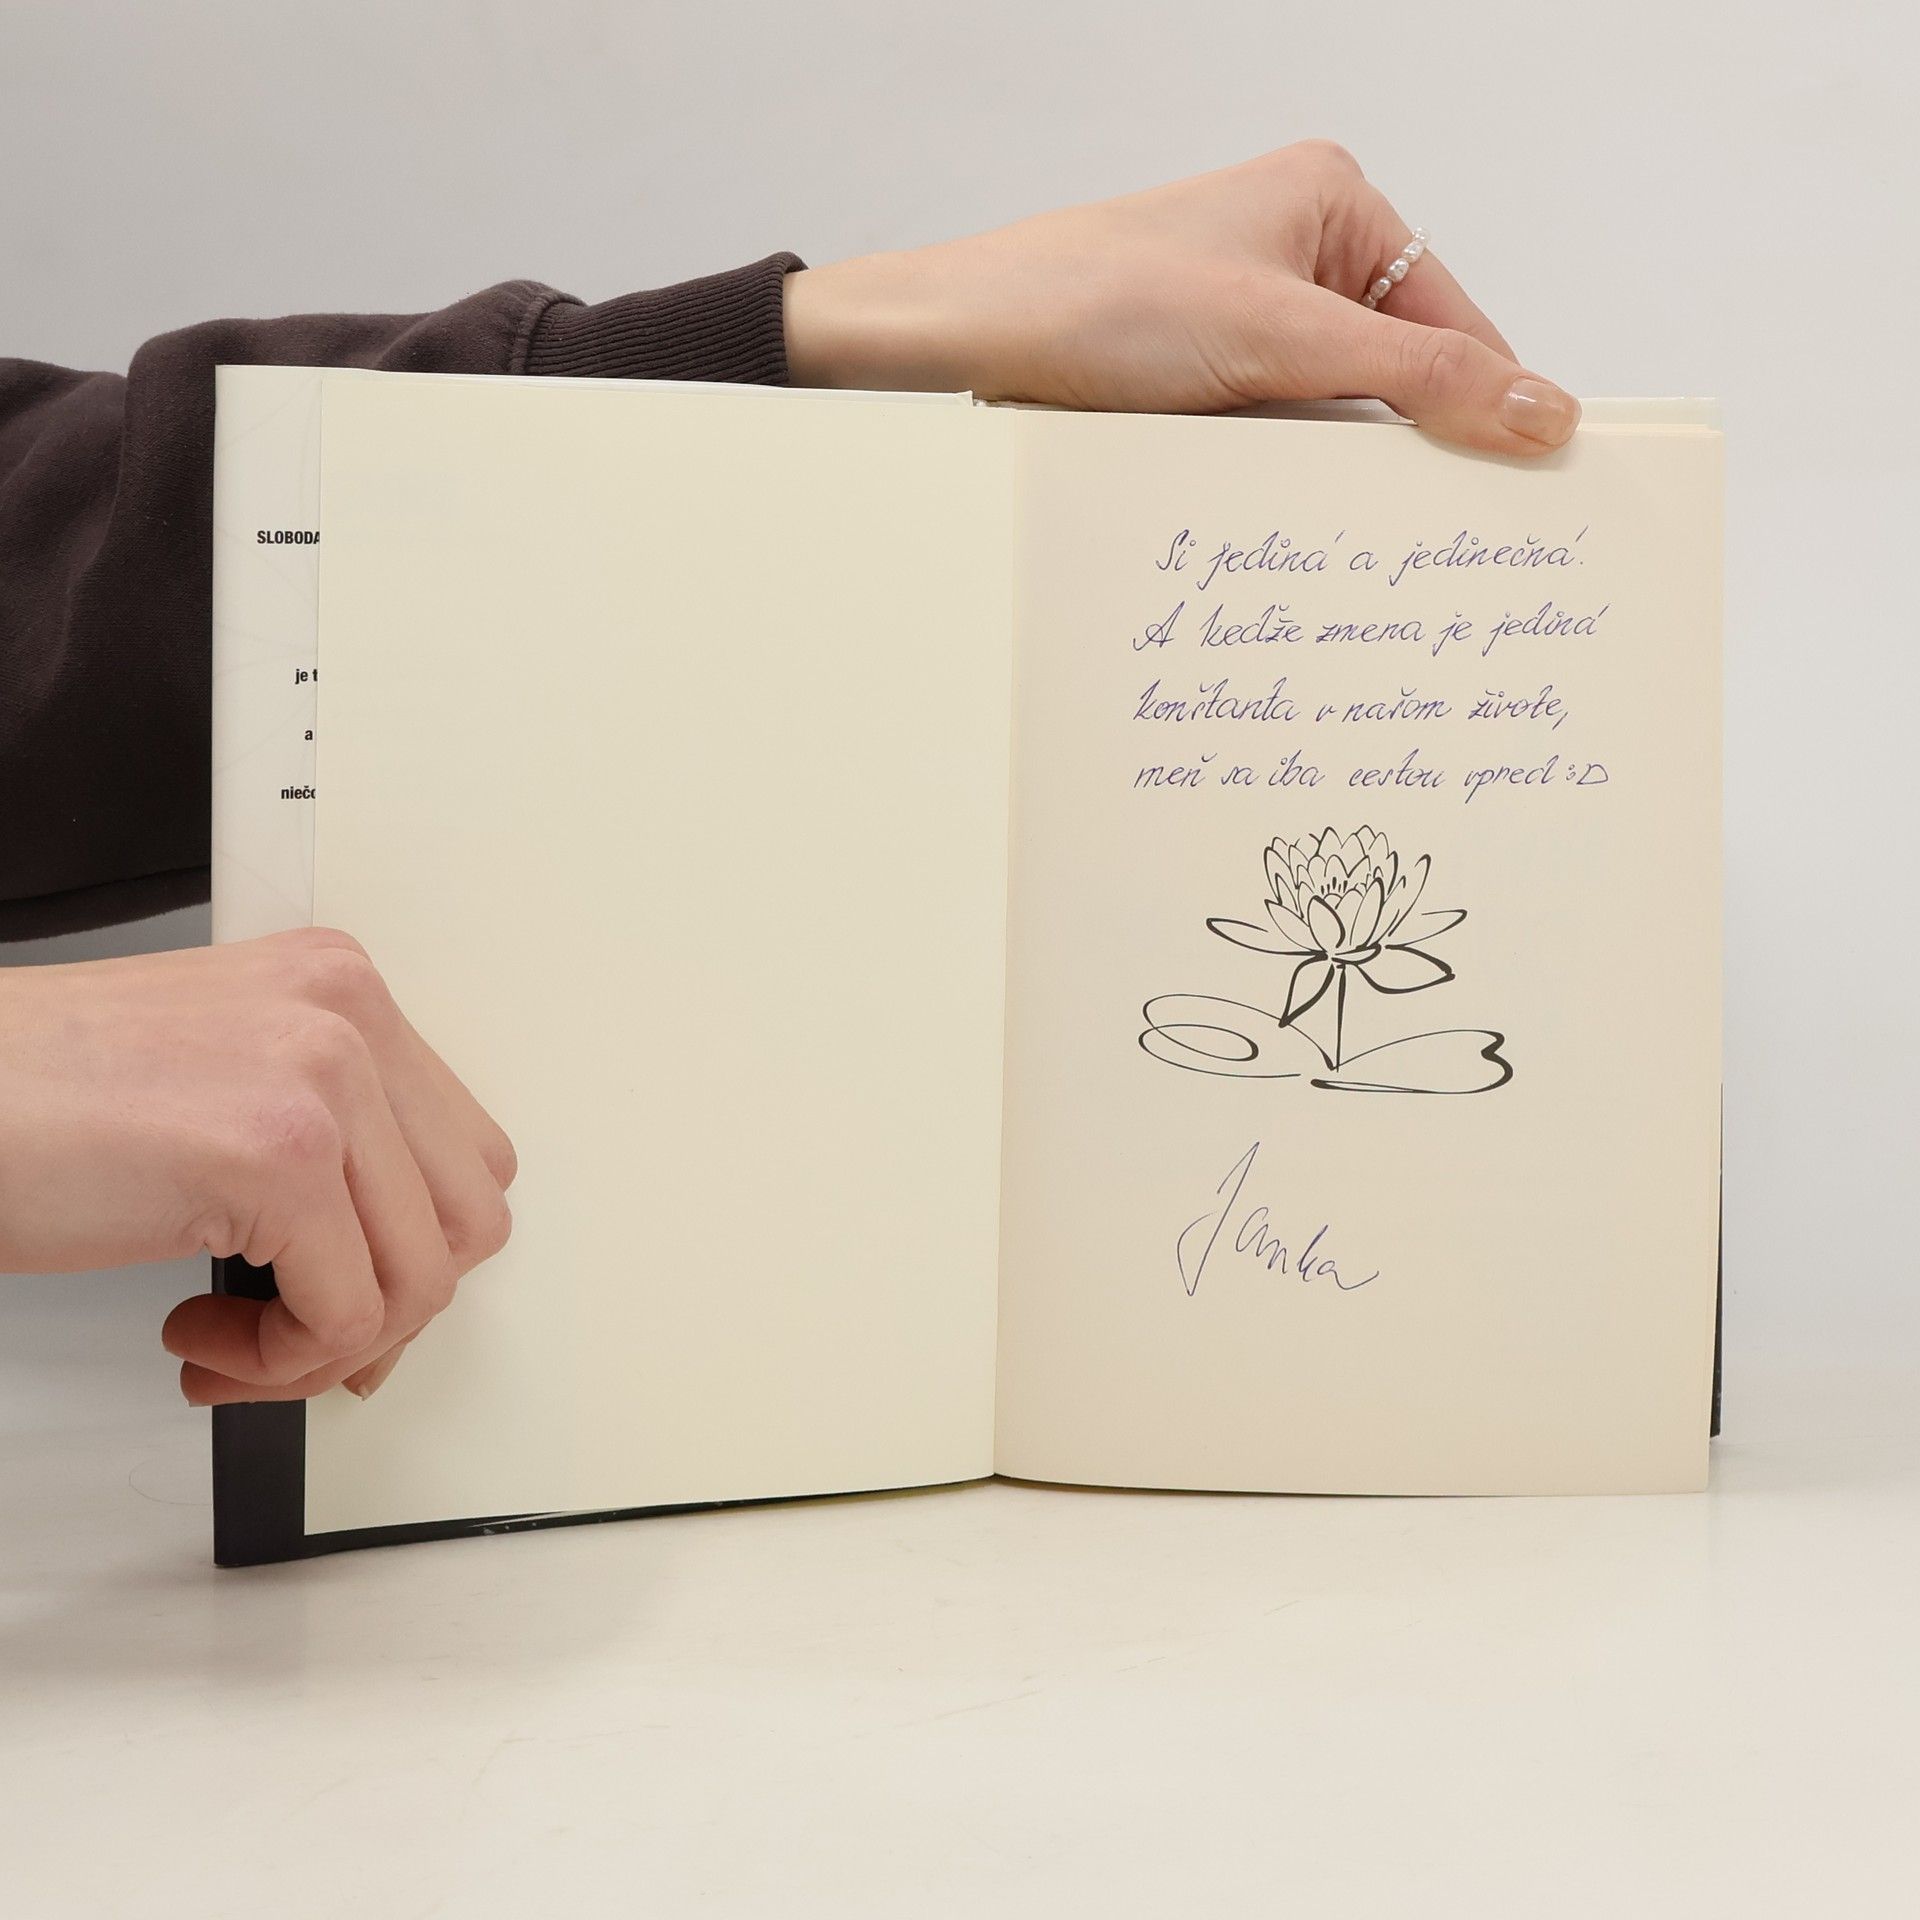 SLOBODA
je t
a
niečo
Si jediná a jedinečná!
A keďže zmena je jediná
konštanta v našom živote,
meň sa iba cestou vpred :D
Janka